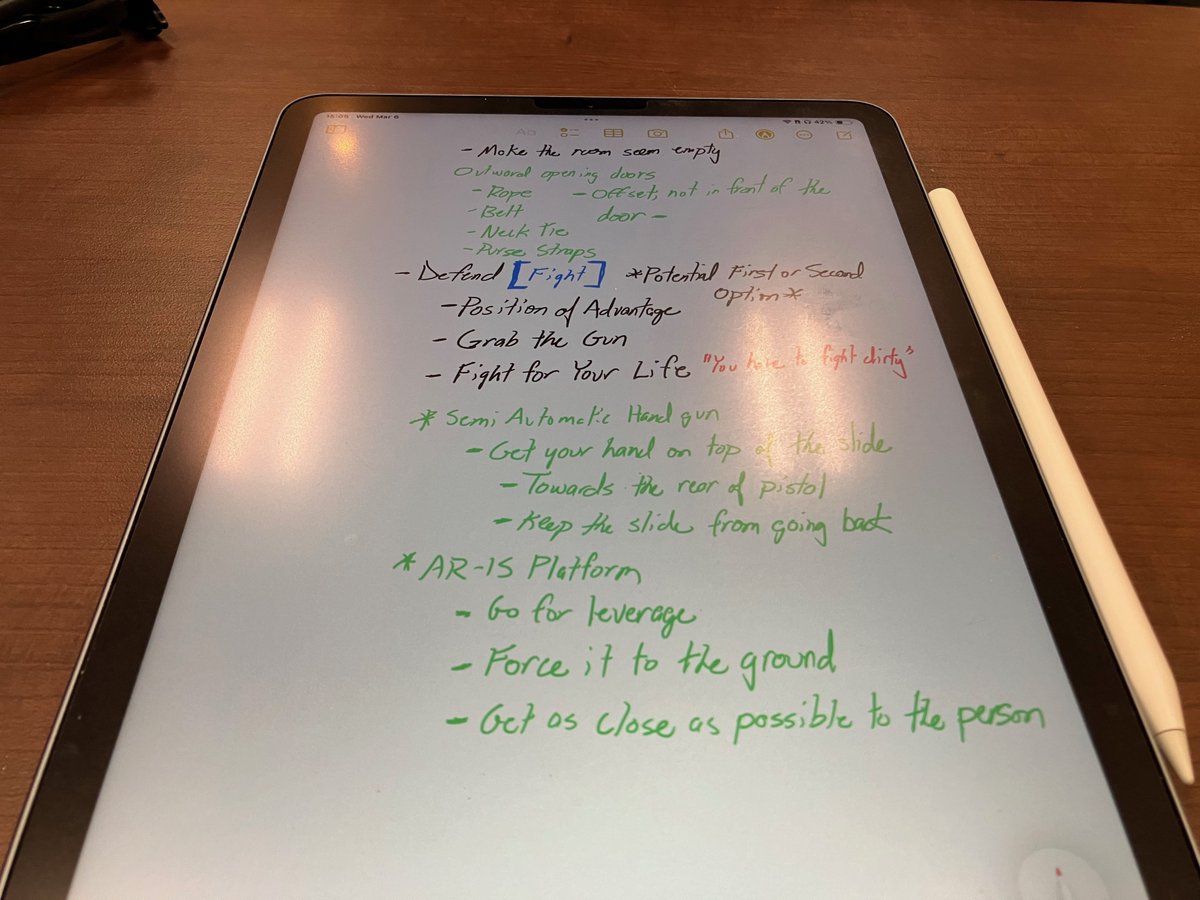 15:05 Wed Mar 6
42%
Aa
- Make the room seem empty
Outward opening doors
- Rope - Offset, not in front of the
- Belt door -
- Neck Tie
- Purse Straps
- Defend [Fight] *Potential First or Second
Option*
- Position of Advantage
- Grab the Gun
- Fight for Your Life "You have to fight dirty"
* Semi Automatic Handgun
- Get your hand on top of the slide
- Towards the rear of pistol
- Keep the slide from going back
* AR-15 Platform
- Go for leverage
- Force it to the ground
- Get as close as possible to the person